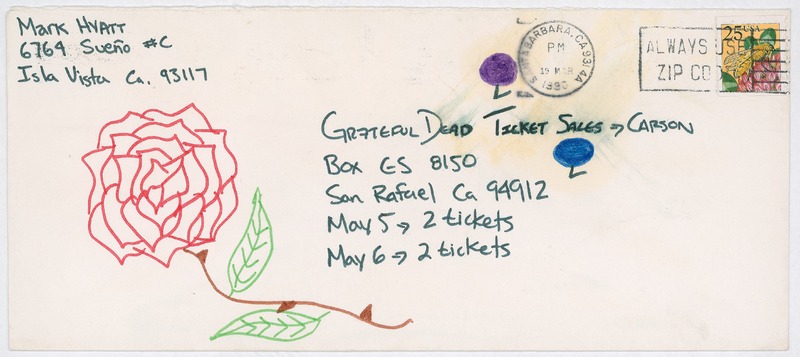 Mark Hyatt
6764 Sueño #C
Isla Vista Ca. 93117
SANTA BARBARA, CA 931
PM
19 MAR
1990
ALWAYS USE
ZIP CO
25 USA
Grateful Dead Ticket Sales → Carson
Box GS 8150
San Rafael Ca 94912
May 5 → 2 tickets
May 6 → 2 tickets